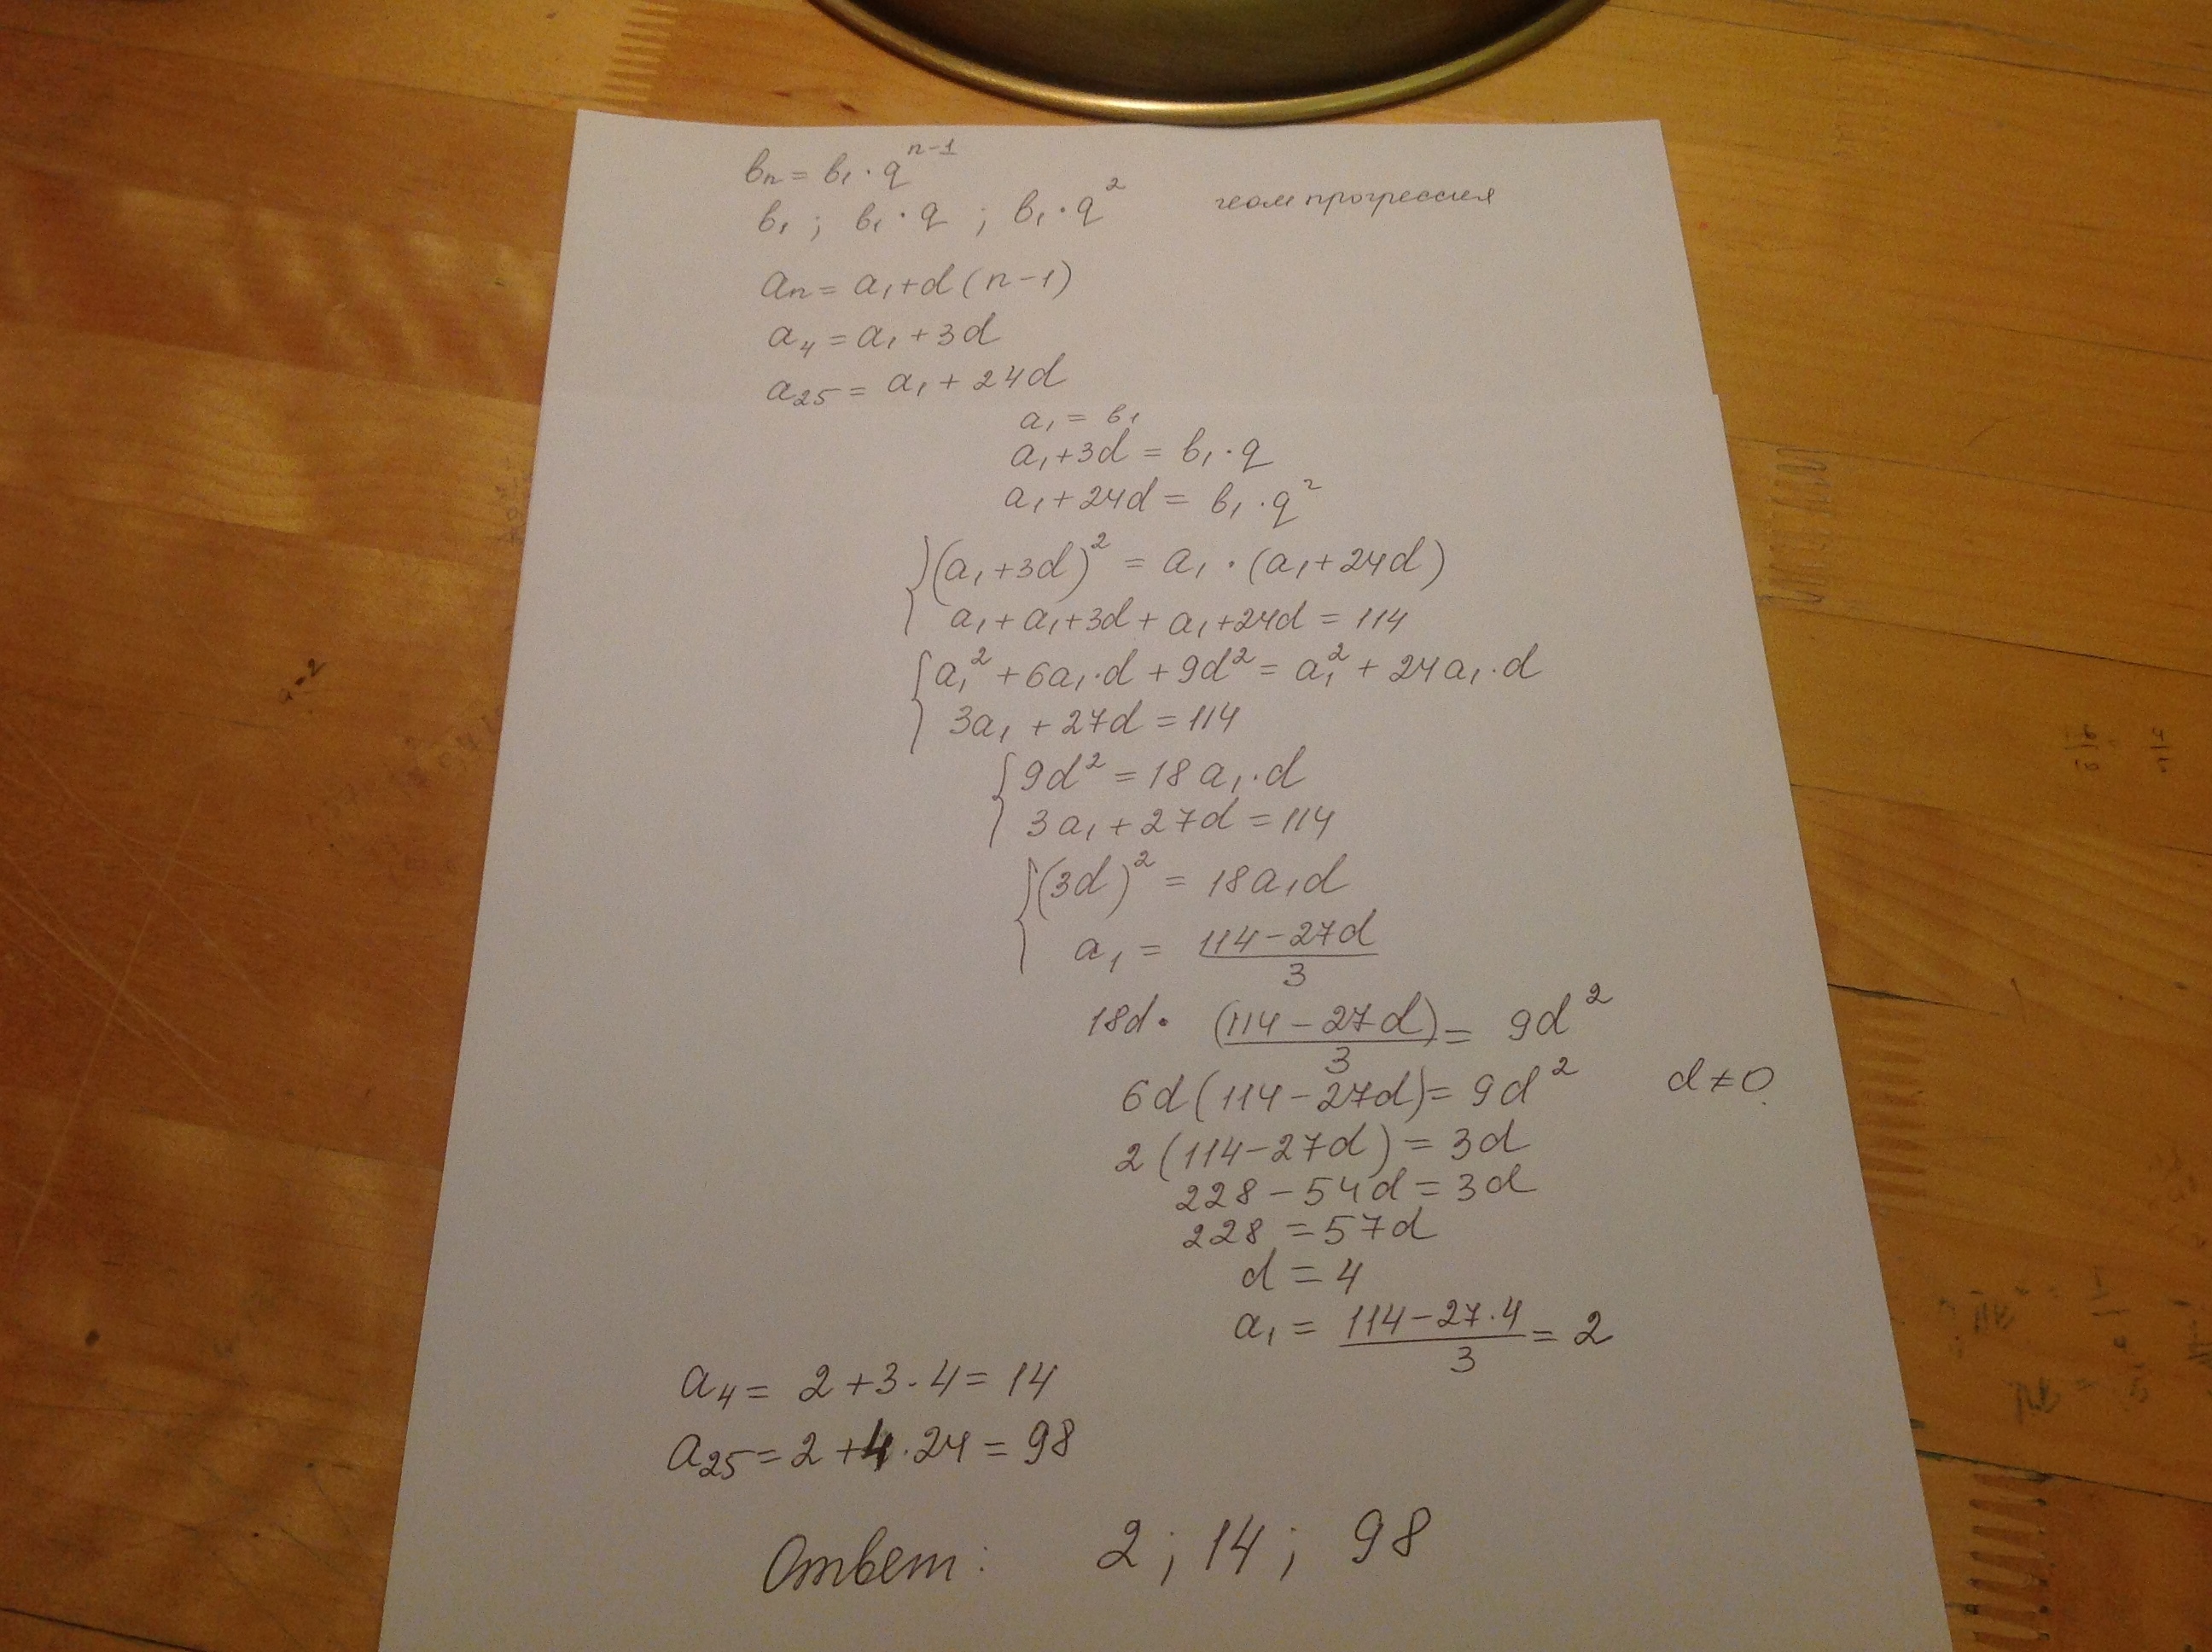 bₙ = b₁ · qⁿ⁻¹
b₁ ; b₁ · q ; b₁ · q² геом прогрессия
aₙ = a₁ + d(n-1)
a₄ = a₁ + 3d
a₂₅ = a₁ + 24d
a₁ = b₁
a₁ + 3d = b₁ · q
a₁ + 24d = b₁ · q²
{ (a₁ + 3d)² = a₁ · (a₁ + 24d)
a₁ + a₁ + 3d + a₁ + 24d = 114
{ a₁² + 6a₁ · d + 9d² = a₁² + 24a₁ · d
3a₁ + 27d = 114
{ 9d² = 18a₁ · d
3a₁ + 27d = 114
{ (3d)² = 18a₁d
a₁ = (114 - 27d)/3
18d · (114 - 27d)/3 = 9d²
6d(114 - 27d) = 9d² d ≠ 0
2(114 - 27d) = 3d
228 - 54d = 3d
228 = 57d
d = 4
a₁ = (114 - 27 · 4)/3 = 2
a₄ = 2 + 3 · 4 = 14
a₂₅ = 2 + 4 · 24 = 98
Ответ: 2 ; 14 ; 98